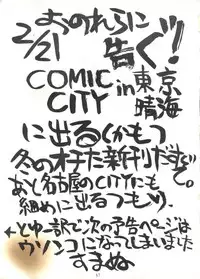 おのれらに
2/21 告ぐッ!
COMIC CITY in 東京晴海
に出る(かもつ
冬のオチた新刊だすぞ。
あと名古屋のCITYにも
細めに出るつもリ。
とゆー訳で次の予告ページは
ウソンコになってしまいました
すまぬ